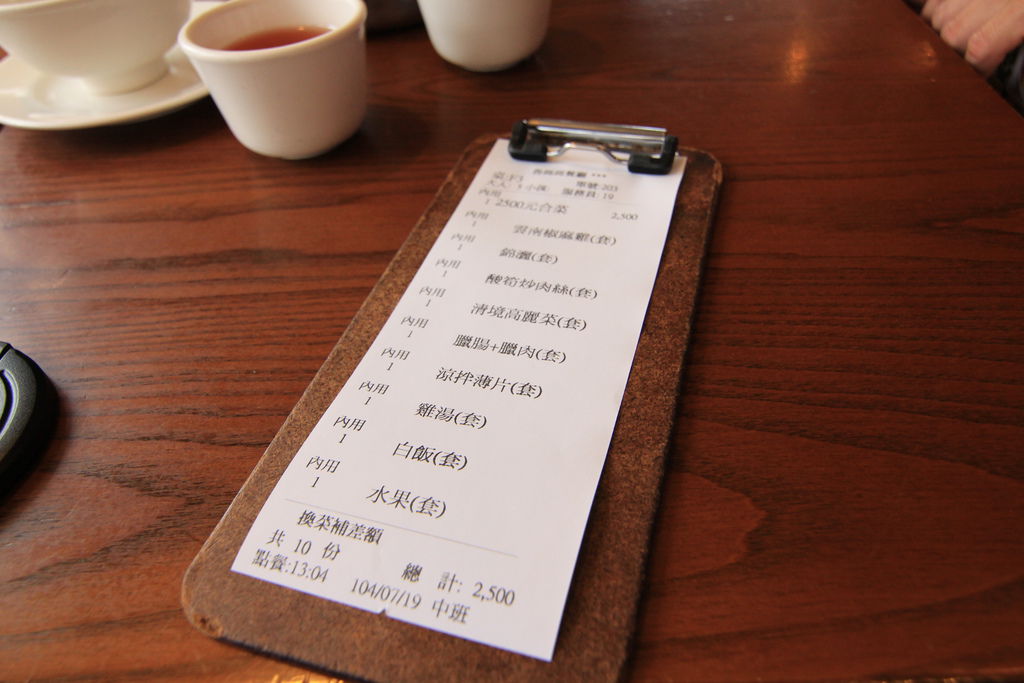 單號:203
大人: 5 小孩: 服務員: 19
內用
1 2500元合菜 2,500
內用
1 雲南椒麻雞(套)
內用
1 錦灑(套)
內用
1 酸筍炒肉絲(套)
內用
1 清境高麗菜(套)
內用
1 臘腸+臘肉(套)
內用
1 涼拌薄片(套)
內用
1 雞湯(套)
內用
1 白飯(套)
內用
1 水果(套)
換菜補差額
共 10 份 總 計: 2,500
點餐:13:04 104/07/19 中班